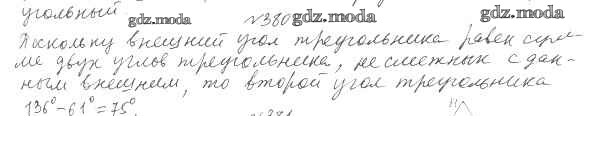 угольный gdz.moda
№380 gdz.moda gdz.moda
Поскольку внешний угол треугольника равен сум-
ме двух углов треугольника, не смежных с дан-
ным внешним, то второй угол треугольника
136°-61°=75°.